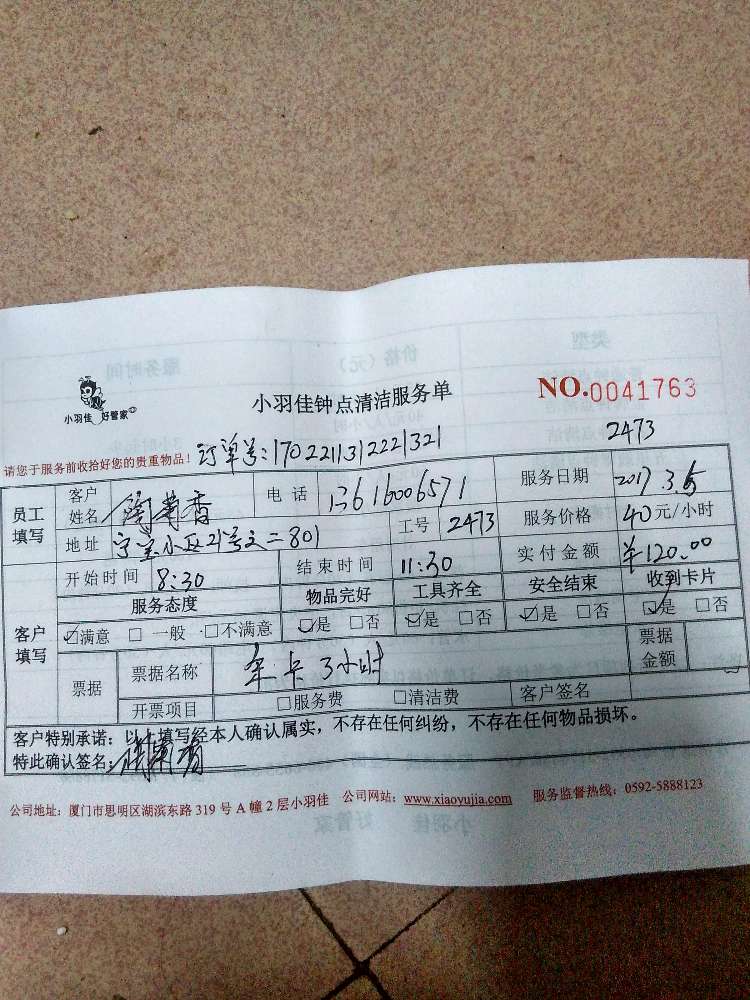 小羽佳 好管家
小羽佳钟点清洁服务单
NO.0041763
请您于服务前收拾好您的贵重物品！ 订单号：1702211312221321 2473
员工填写 客户姓名 菊香 电话 13616006571 服务日期 2017.3.5
地址 宁宝小区21号之二801 工号 2473 服务价格 40元/小时
客户填写 开始时间 8:30 结束时间 11:30 实付金额 ￥120.00
服务态度 物品完好 工具齐全 安全结束 收到卡片
☑满意 □一般 □不满意 ☑是 □否 ☑是 □否 ☑是 □否 ☑是 □否
票据 票据名称 年卡3小时 票据金额
开票项目 □服务费 □清洁费 客户签名
客户特别承诺：以上填写经本人确认属实，不存在任何纠纷，不存在任何物品损坏。
特此确认签名：
公司地址：厦门市思明区湖滨东路 319 号 A 幢 2 层小羽佳 公司网站：www.xiaoyujia.com 服务监督热线：0592-5888123